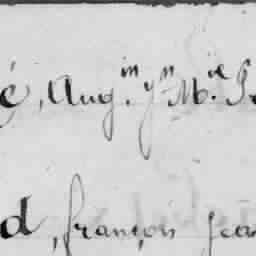 é, Aug.in yn M.ie
d, françois jea